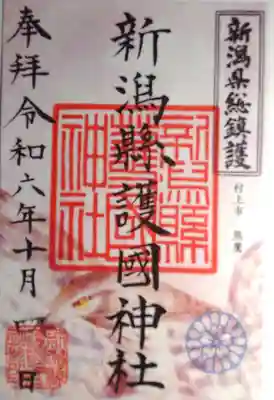 新潟県総鎮護
村上市
新潟縣護國神社
新潟縣
神社
奉拝令和六年十月四日